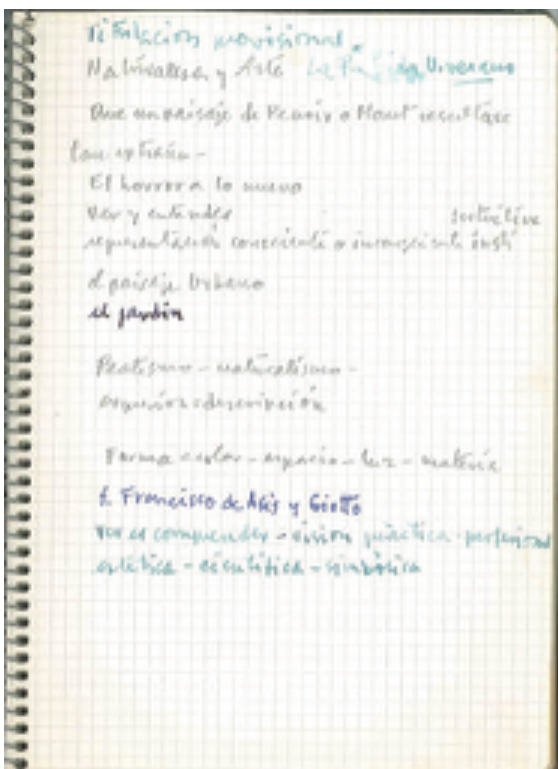 Titulación provisional
Naturaleza y Arte La
Que un paisaje de Renoir o Monet resultase
tan extraño -
El horror a lo nuevo
Ver y entender
representación consciente o inconsciente
el paisaje Urbano
el jardín
Realismo - naturalismo -
expresión - descripción
Forma - color - espacio - luz - materia
S. Francisco de Asís y Giotto
ver es comprender - visión práctica - profesional
estética - científica - simbólica